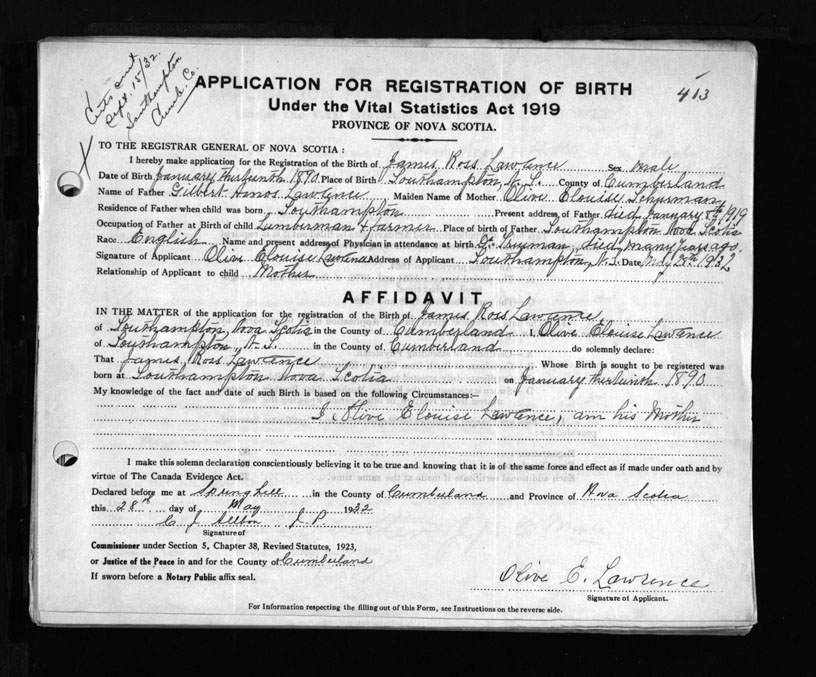 Sept. 15/32.
Southampton
Cumb. Co.
413
APPLICATION FOR REGISTRATION OF BIRTH
Under the Vital Statistics Act 1919
PROVINCE OF NOVA SCOTIA.
TO THE REGISTRAR GENERAL OF NOVA SCOTIA:
I hereby make application for the Registration of the Birth of James Ross Lawrence Sex Male
Date of Birth January thirteenth 1890. Place of Birth Southampton, N.S. County of Cumberland
Name of Father Gilbert Amos Lawrence Maiden Name of Mother Olive Elouise Schurman
Residence of Father when child was born Southampton Present address of Father died January 8th 1919
Occupation of Father at Birth of child Lumberman & farmer Place of birth of Father Southampton Nova Scotia
Race English Name and present address of Physician in attendance at birth Dr. died many years ago
Signature of Applicant Olive Elouise Lawrence Address of Applicant Southampton, N.S. Date May 28th 1932
Relationship of Applicant to child Mother
AFFIDAVIT
IN THE MATTER of the application for the registration of the Birth of James Ross Lawrence
of Southampton, Nova Scotia in the County of Cumberland I, Olive Elouise Lawrence
of Southampton, N.S. in the County of Cumberland do solemnly declare:
That James Ross Lawrence Whose Birth is sought to be registered was
born at Southampton Nova Scotia on January thirteenth 1890.
My knowledge of the fact and date of such Birth is based on the following Circumstances:—
I, Olive Elouise Lawrence, am his Mother
I make this solemn declaration conscientiously believing it to be true and knowing that it is of the same force and effect as if made under oath and by
virtue of The Canada Evidence Act.
Declared before me at Springhill in the County of Cumberland and Province of Nova Scotia
this 28th day of May 1932
C. J. J. P.
Signature of
Commissioner under Section 5, Chapter 38, Revised Statutes, 1923,
or Justice of the Peace in and for the County of Cumberland
If sworn before a Notary Public affix seal.
Olive E. Lawrence
Signature of Applicant.
For Information respecting the filling out of this Form, see Instructions on the reverse side.